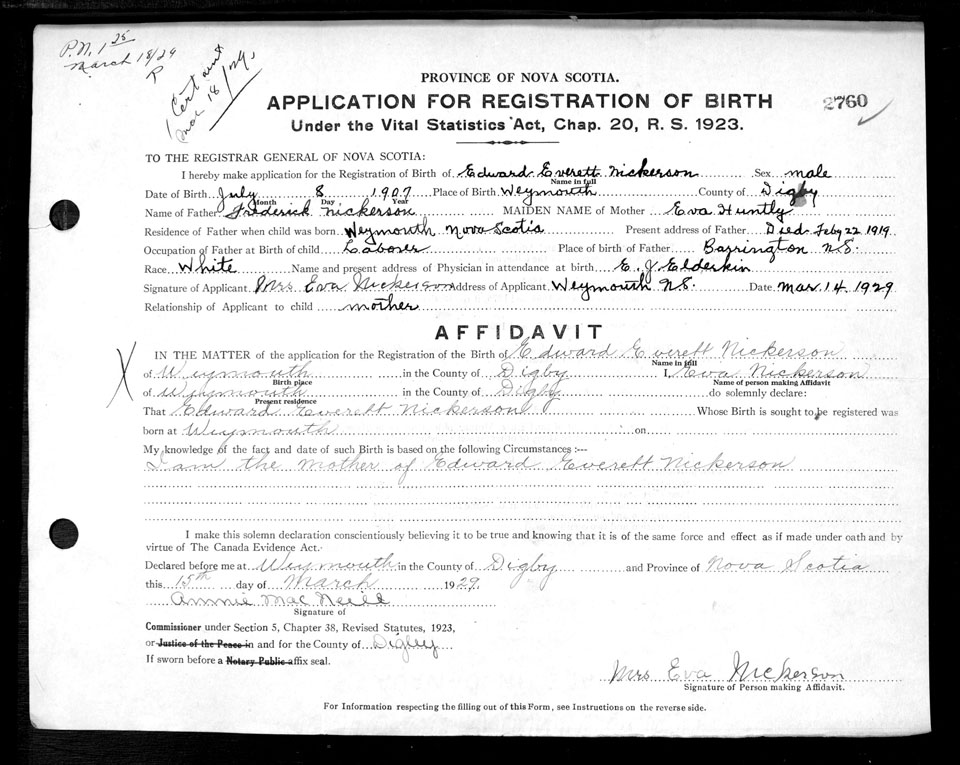 P.N. 1 25
March 18/29
P
1 Cert
Mar 18/29
PROVINCE OF NOVA SCOTIA.
APPLICATION FOR REGISTRATION OF BIRTH
2760
Under the Vital Statistics Act, Chap. 20, R. S. 1923.
TO THE REGISTRAR GENERAL OF NOVA SCOTIA:
I hereby make application for the Registration of Birth of Edward Everett Nickerson Sex male
Name in full
Date of Birth July 8 1907 Place of Birth Weymouth County of Digby
Month Day Year
Name of Father Frederick Nickerson MAIDEN NAME of Mother Eva Huntly
Residence of Father when child was born Weymouth Nova Scotia Present address of Father Died Feby 22 1919
Occupation of Father at Birth of child Laborer Place of birth of Father Barrington N.S.
Race White Name and present address of Physician in attendance at birth E. J Elderkin
Signature of Applicant Mrs Eva Nickerson Address of Applicant Weymouth N.S. Date Mar. 14, 1929
Relationship of Applicant to child mother
AFFIDAVIT
X
IN THE MATTER of the application for the Registration of the Birth of Edward Everett Nickerson
Name in full
of Weymouth in the County of Digby I, Eva Nickerson
Birth place Name of person making Affidavit
of Weymouth in the County of Digby do solemnly declare:
Present residence
That Edward Everett Nickerson Whose Birth is sought to be registered was
born at Weymouth on
My knowledge of the fact and date of such Birth is based on the following Circumstances :—
I am the mother of Edward Everett Nickerson
I make this solemn declaration conscientiously believing it to be true and knowing that it is of the same force and effect as if made under oath and by
virtue of The Canada Evidence Act.
Declared before me at Weymouth in the County of Digby and Province of Nova Scotia
this 15th day of March 1929.
Annie Mac Neill
Signature of
Commissioner under Section 5, Chapter 38, Revised Statutes, 1923,
or Justice of the Peace in and for the County of Digby
If sworn before a Notary Public affix seal.
Mrs Eva Nickerson
Signature of Person making Affidavit.
For Information respecting the filling out of this Form, see Instructions on the reverse side.